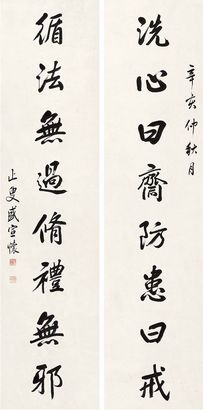 辛亥仲秋月
洗心曰齋防患曰戒
循法無過脩禮無邪
止叟盛宣懷